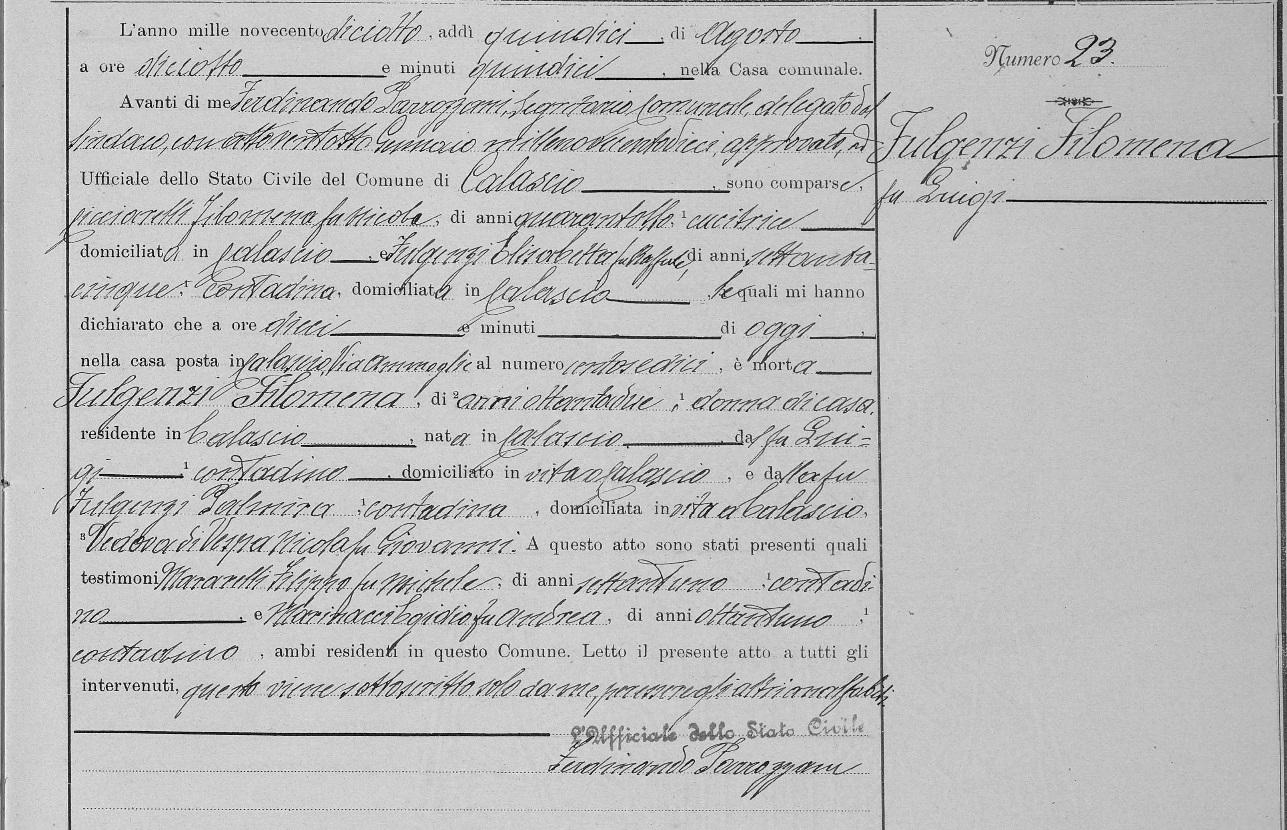 Numero 23.
Fulgenzi Filomena
fu Luigi
L'anno mille novecento diciotto, addì quindici di Agosto,
a ore diciotto e minuti quindici, nella Casa comunale.
Avanti di me Ferdinando Parrozzani, Segretario Comunale, delegato dal
Sindaco, con atto ventotto Gennaio millenovecentodieci, approvato, ed
Ufficiale dello Stato Civile del Comune di Calascio, sono comparse,
Picciarelli Filomena fu Nicola, di anni quarantotto, ¹ cucitrice
domiciliata in Calascio, e Fulgenzi Elisabetta fu Raffaele, di anni settanta-
cinque, ¹ contadina, domiciliata in Calascio le quali mi hanno
dichiarato che a ore dieci e minuti di oggi,
nella casa posta in Calascio, Via al numero centosedici, è morta
Fulgenzi Filomena, di ² anni ottantadue, ¹ donna di casa,
residente in Calascio, nata in Calascio, dal fu Lui-
gi ¹ contadino, domiciliato in vita a Calascio, e dalla fu
Fulgenzi Palmira, ¹ contadina, domiciliata in vita a Calascio,
³ Vedova di Vespa Nicola fu Giovanni. A questo atto sono stati presenti quali
testimoni Mararelli Filippo fu Michele, di anni settantuno, ¹ contadi-
no, e Marinacci Egidio fu Andrea, di anni ottantuno, ¹
contadino, ambi residenti in questo Comune. Letto il presente atto a tutti gli
intervenuti, questo viene sottoscritto solo da me, gli altri analfabeti.
L'Ufficiale dello Stato Civile
Ferdinando Parrozzani